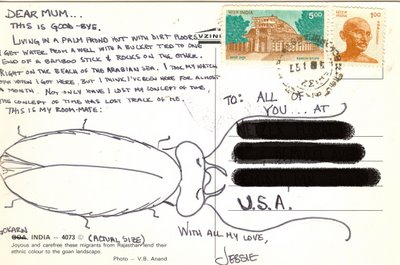 DEAR MUM...
THIS IS GOOD-BYE.
LIVING IN A PALM FROND HUT WITH DIRT FLOORS
I GET WATER FROM A WELL WITH A BUCKET TIED TO ONE
END OF A BAMBOO STICK & ROCKS ON THE OTHER.
RIGHT ON THE BEACH OF THE ARABIAN SEA. I TOOK MY WATCH
OFF WHEN I GOT HERE, BUT I THINK I'VE BEEN HERE FOR ALMOST
A MONTH. NOT ONLY HAVE I LOST MY CONCEPT OF TIME,
THE CONCEPT OF TIME HAS LOST TRACK OF ME.
THIS IS MY ROOM-MATE:
भारत INDIA
5.00
SANCHI STUPA
भारत INDIA
1.00
TO: ALL OF
YOU... AT
U.S.A.
GOKARN
GOA INDIA – 4073 ©
(ACTUAL SIZE)
Joyous and carefree these migrants from Rajasthan lend their
ethnic colour to the goan landscape.
Photo – V.B. Anand
WITH ALL MY LOVE,
JESSIE